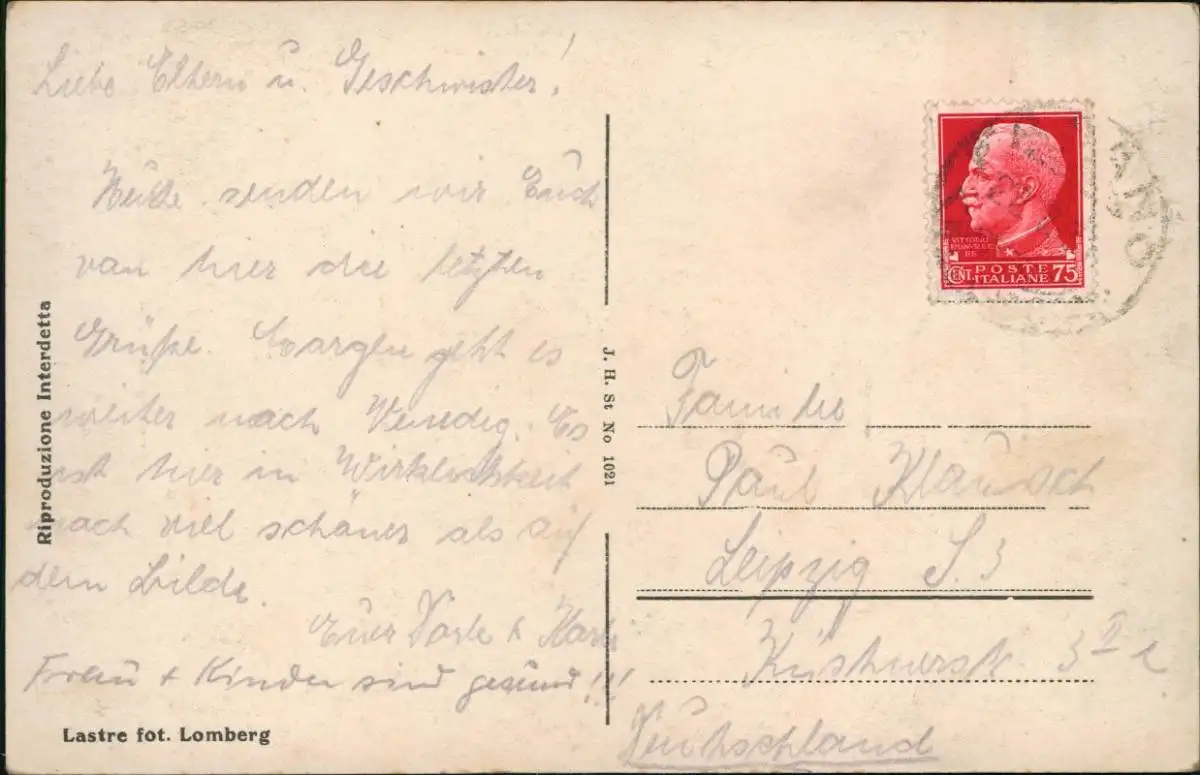 Liebe Eltern u. Geschwister!
Heute senden wir Euch
von hier die letzten
Grüße. Morgen geht es
weiter nach Venedig. Es
ist hier in Wirklichkeit
noch viel schöner als auf
dem Bilde.
Euer &
Frau + Kinder sind gesund!!!
Lastre fot. Lomberg
Riproduzione Interdetta
J. H. St No 1021
VITTORIO
RE
CENT. POSTE ITALIANE 75
Familie
Paul Klausch
Leipzig S. 3
3 II
Deutschland